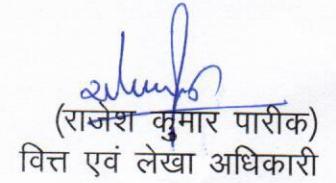 (राजेश कुमार पारीक)
वित्त एवं लेखा अधिकारी